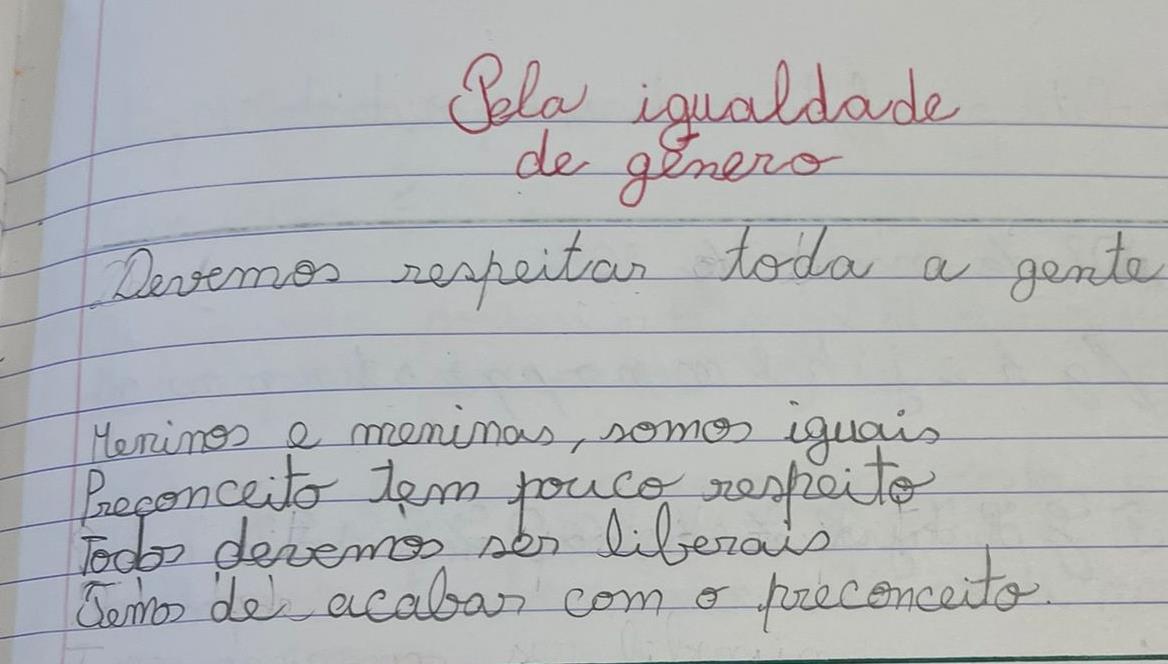 Pela igualdade
de gênero
Devemos respeitar toda a gente
Meninos e meninas, somos iguais
Preconceito tem pouco respeito
Todos devemos ser liberais
Temos de acabar com o preconceito.